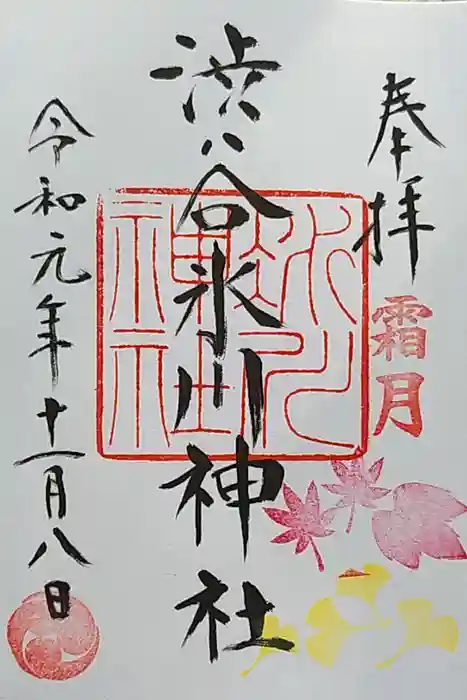 奉拝
霜月
渋谷氷川神社
令和元年十一月八日